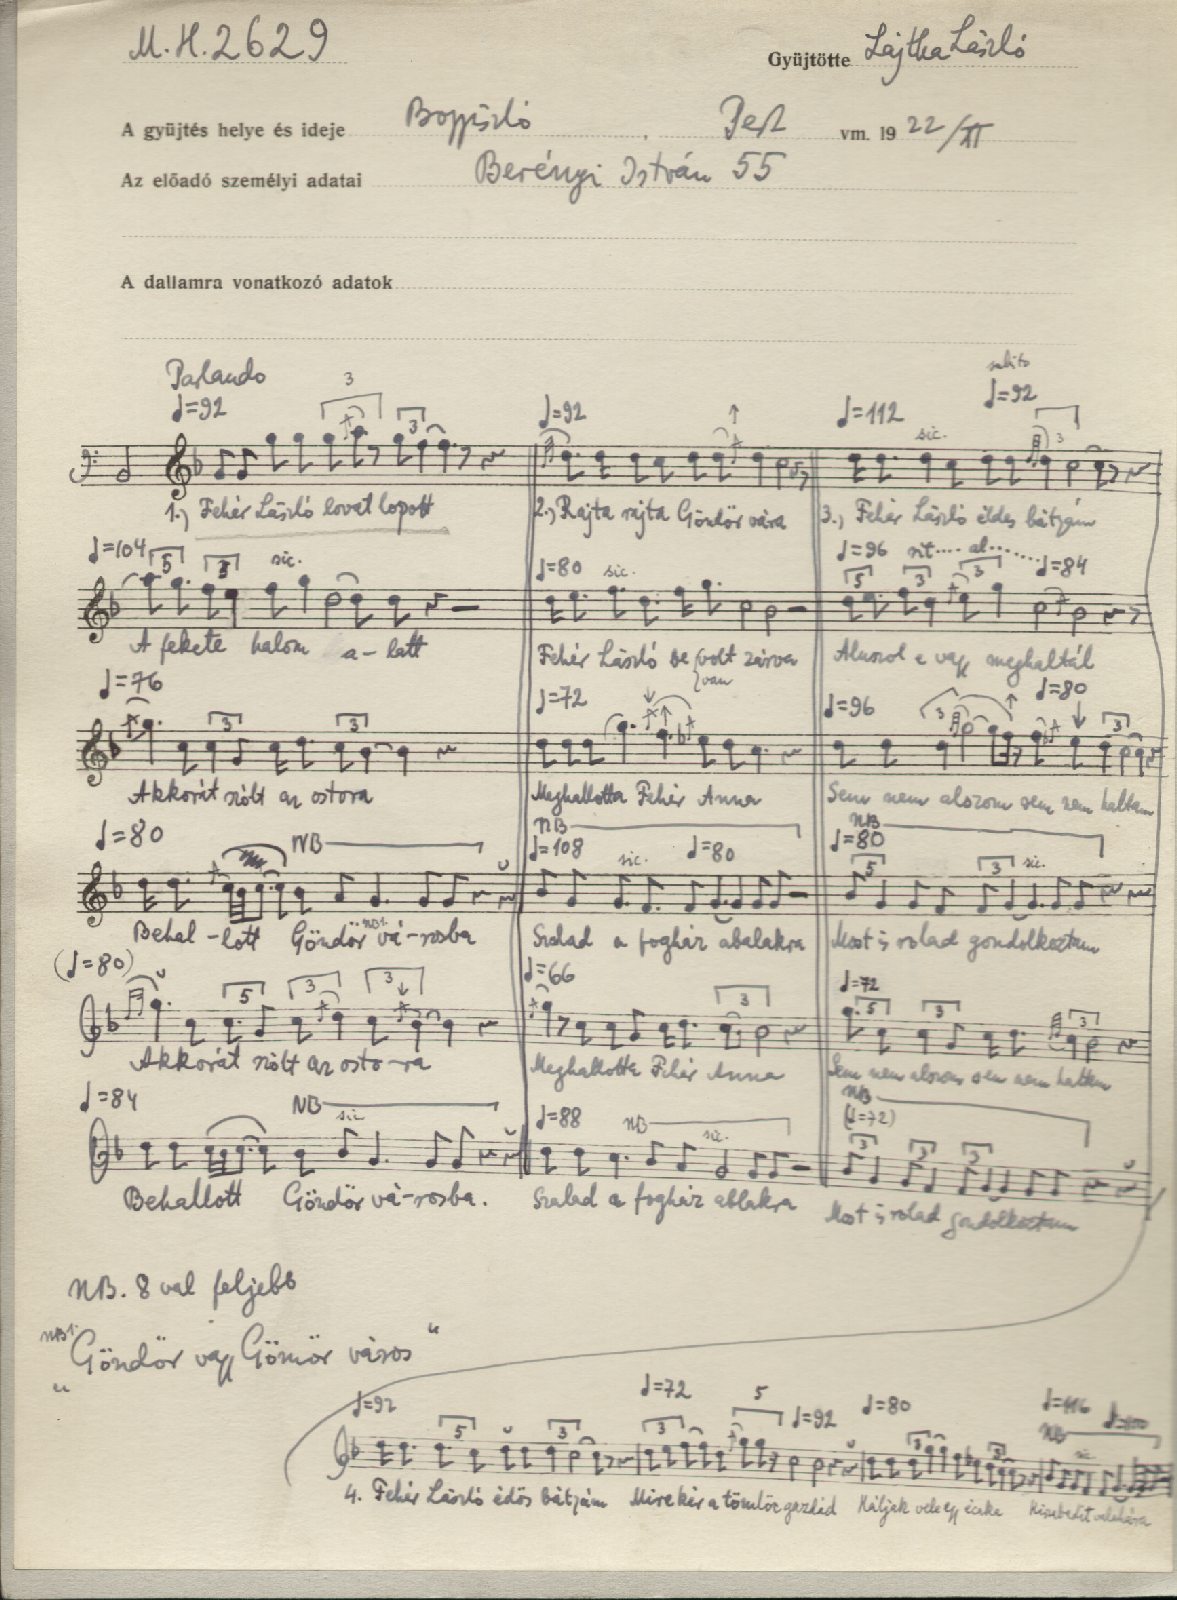 M.H.2629
Gyüjtötte Lajtha László
A gyüjtés helye és ideje , Pest vm. 1922/XI
Az előadó személyi adatai Berényi István 55
A dallamra vonatkozó adatok
Parlando
subito
♩=92 3 ♩=92 ♩=112 sic. ♩=92
3 3
1.) Fehér László lovat lopott 2.) Rajta rajta Göndör vára 3.) Fehér László édes bátyám
♩=104 5 3 sic. ♩=80 sic. ♩=96 rit.... al...... ♩=84
5 3 3
A fekete halom a-latt Fehér László be {volt zárva Aluszol e vagy meghaltál
{van
♩=76 3 3 ♩=72 ♩=96 3 ♩=80 3
Akkorát szólt az ostora Meghallotta Fehér Anna Sem nem alszom sem nem haltam
♩=80 NB NB ♩=108 sic. ♩=80 NB ♩=80 5 3 sic.
Behal-lott Göndör NB1. vá-rosba Szalad a fogház abalakra Most is rolad gondolkoztam
(♩=80) 5 3 3 ♩=66 3 ♩=72 5 3 3
Akkorát szólt az osto-ra Meghallotta Fehér Anna Sem nem alszom sem nem haltam
♩=84 NB sic ♩=88 NB sic. NB (♩=72) 3 3 3
Behallott Göndör vá-rosba. Szalad a fogház ablakra Most is rolad gondolkoztam
NB. 8 val feljebb
NB1. "Göndör vagy Gömör város"
♩=92 5 3 ♩=72 3 5 ♩=92 ♩=80 3 3 ♩=116 NB sic
4. Fehér László édös bátyám Mire kér a tömlöc gazdád Háljak vele egy écaka